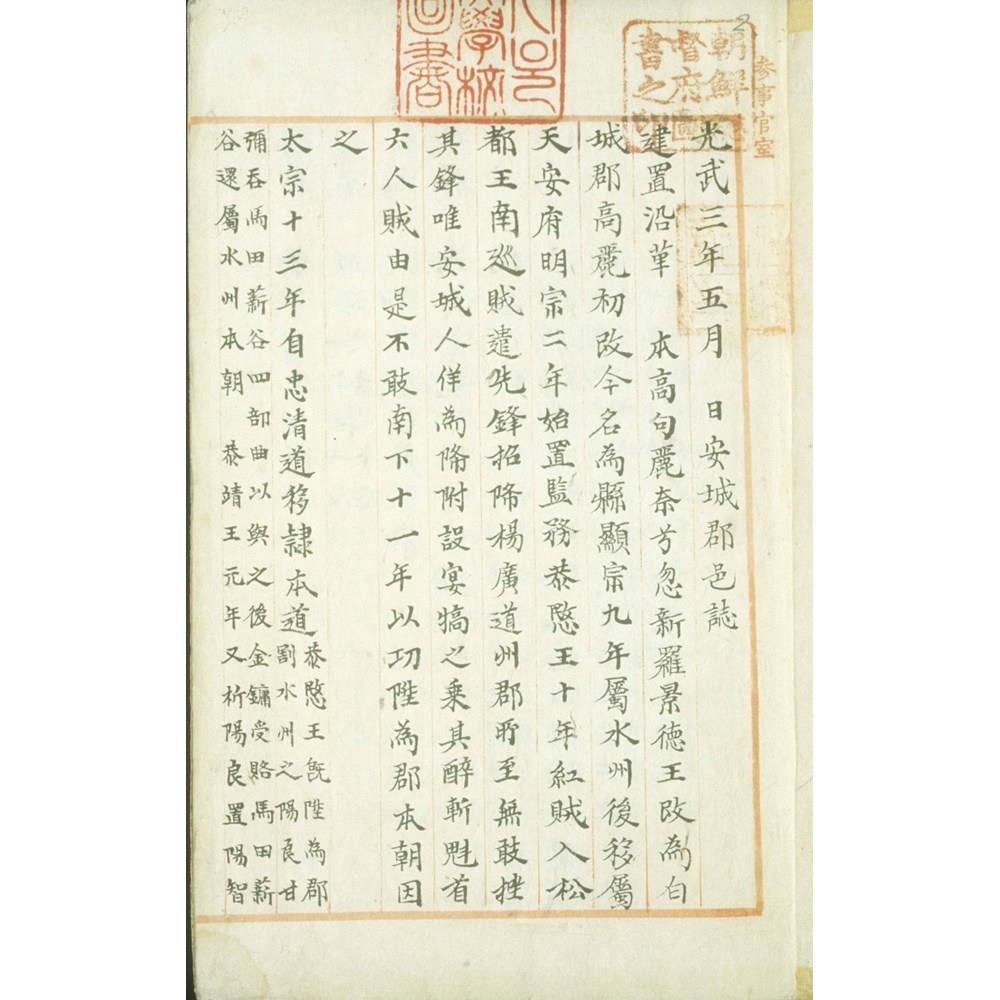 參事官室
光武三年五月 日安城郡邑誌
建置沿革 本高句麗奈兮忽新羅景德王改為白
城郡高麗初改今名為縣顯宗九年屬水州後移屬
天安府明宗二年始置監務恭愍王十年紅賊入松
都王南巡賊遣先鋒招降楊廣道州郡所至無敢挫
其鋒唯安城人佯為降附設宴犒之乘其醉斬魁首
六人賊由是不敢南下十一年以功陞為郡本朝因
之
太宗十三年自忠清道移隸本道
恭愍王旣陞為郡
割水州之陽良甘
彌呑馬田薪谷四部曲以與之後金鏞受賂馬田薪
谷還屬水州本朝 恭靖王元年又析陽良置陽智